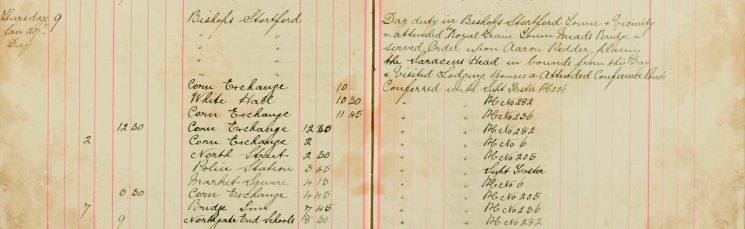 Thursday 9 Bishops Stortford Day duty in Bishops Stortford Town & Vicinity
Jan 28th " & attended Royal Train Town Meads Bridge &
Day " served Order upon Aaron Pedder, placing
" the Saracens Head in bounds from this Day
" & Visited Lodging Houses & Attended Conference Points
Corn Exchange 10 Conferred with Supt Foster PC 236
White Hall 10 30 " " PC No 282
Corn Exchange 11 45 " " PC No 236
12 30 Corn Exchange 12 45 " " PC No 282
2 Corn Exchange 2 " " PC No 6
North Street 2 30 " " PC No 205
Police Station 3 45 " " Supt Foster
Market Square 4 15 " " PC No 6
5 30 Corn Exchange 4 45 " " PC No 205
7 Bridge Inn 7 45 " " PC No 236
9 Northgate End Schools 8 30 " " PC No 282